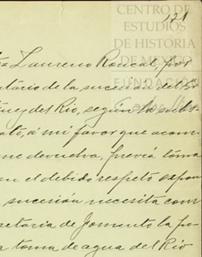 CENTRO DE
ESTUDIOS
DE HISTORIA
DE
121
Laureno Rascal, por
tario de la sucesión del S
uez del Rio, según la subs
to, á mi favor que acom
me devuelva, previa toma
on el debido respeto expon
sucesión necesita con
retaria de Fomento la
toma de agua del Rio